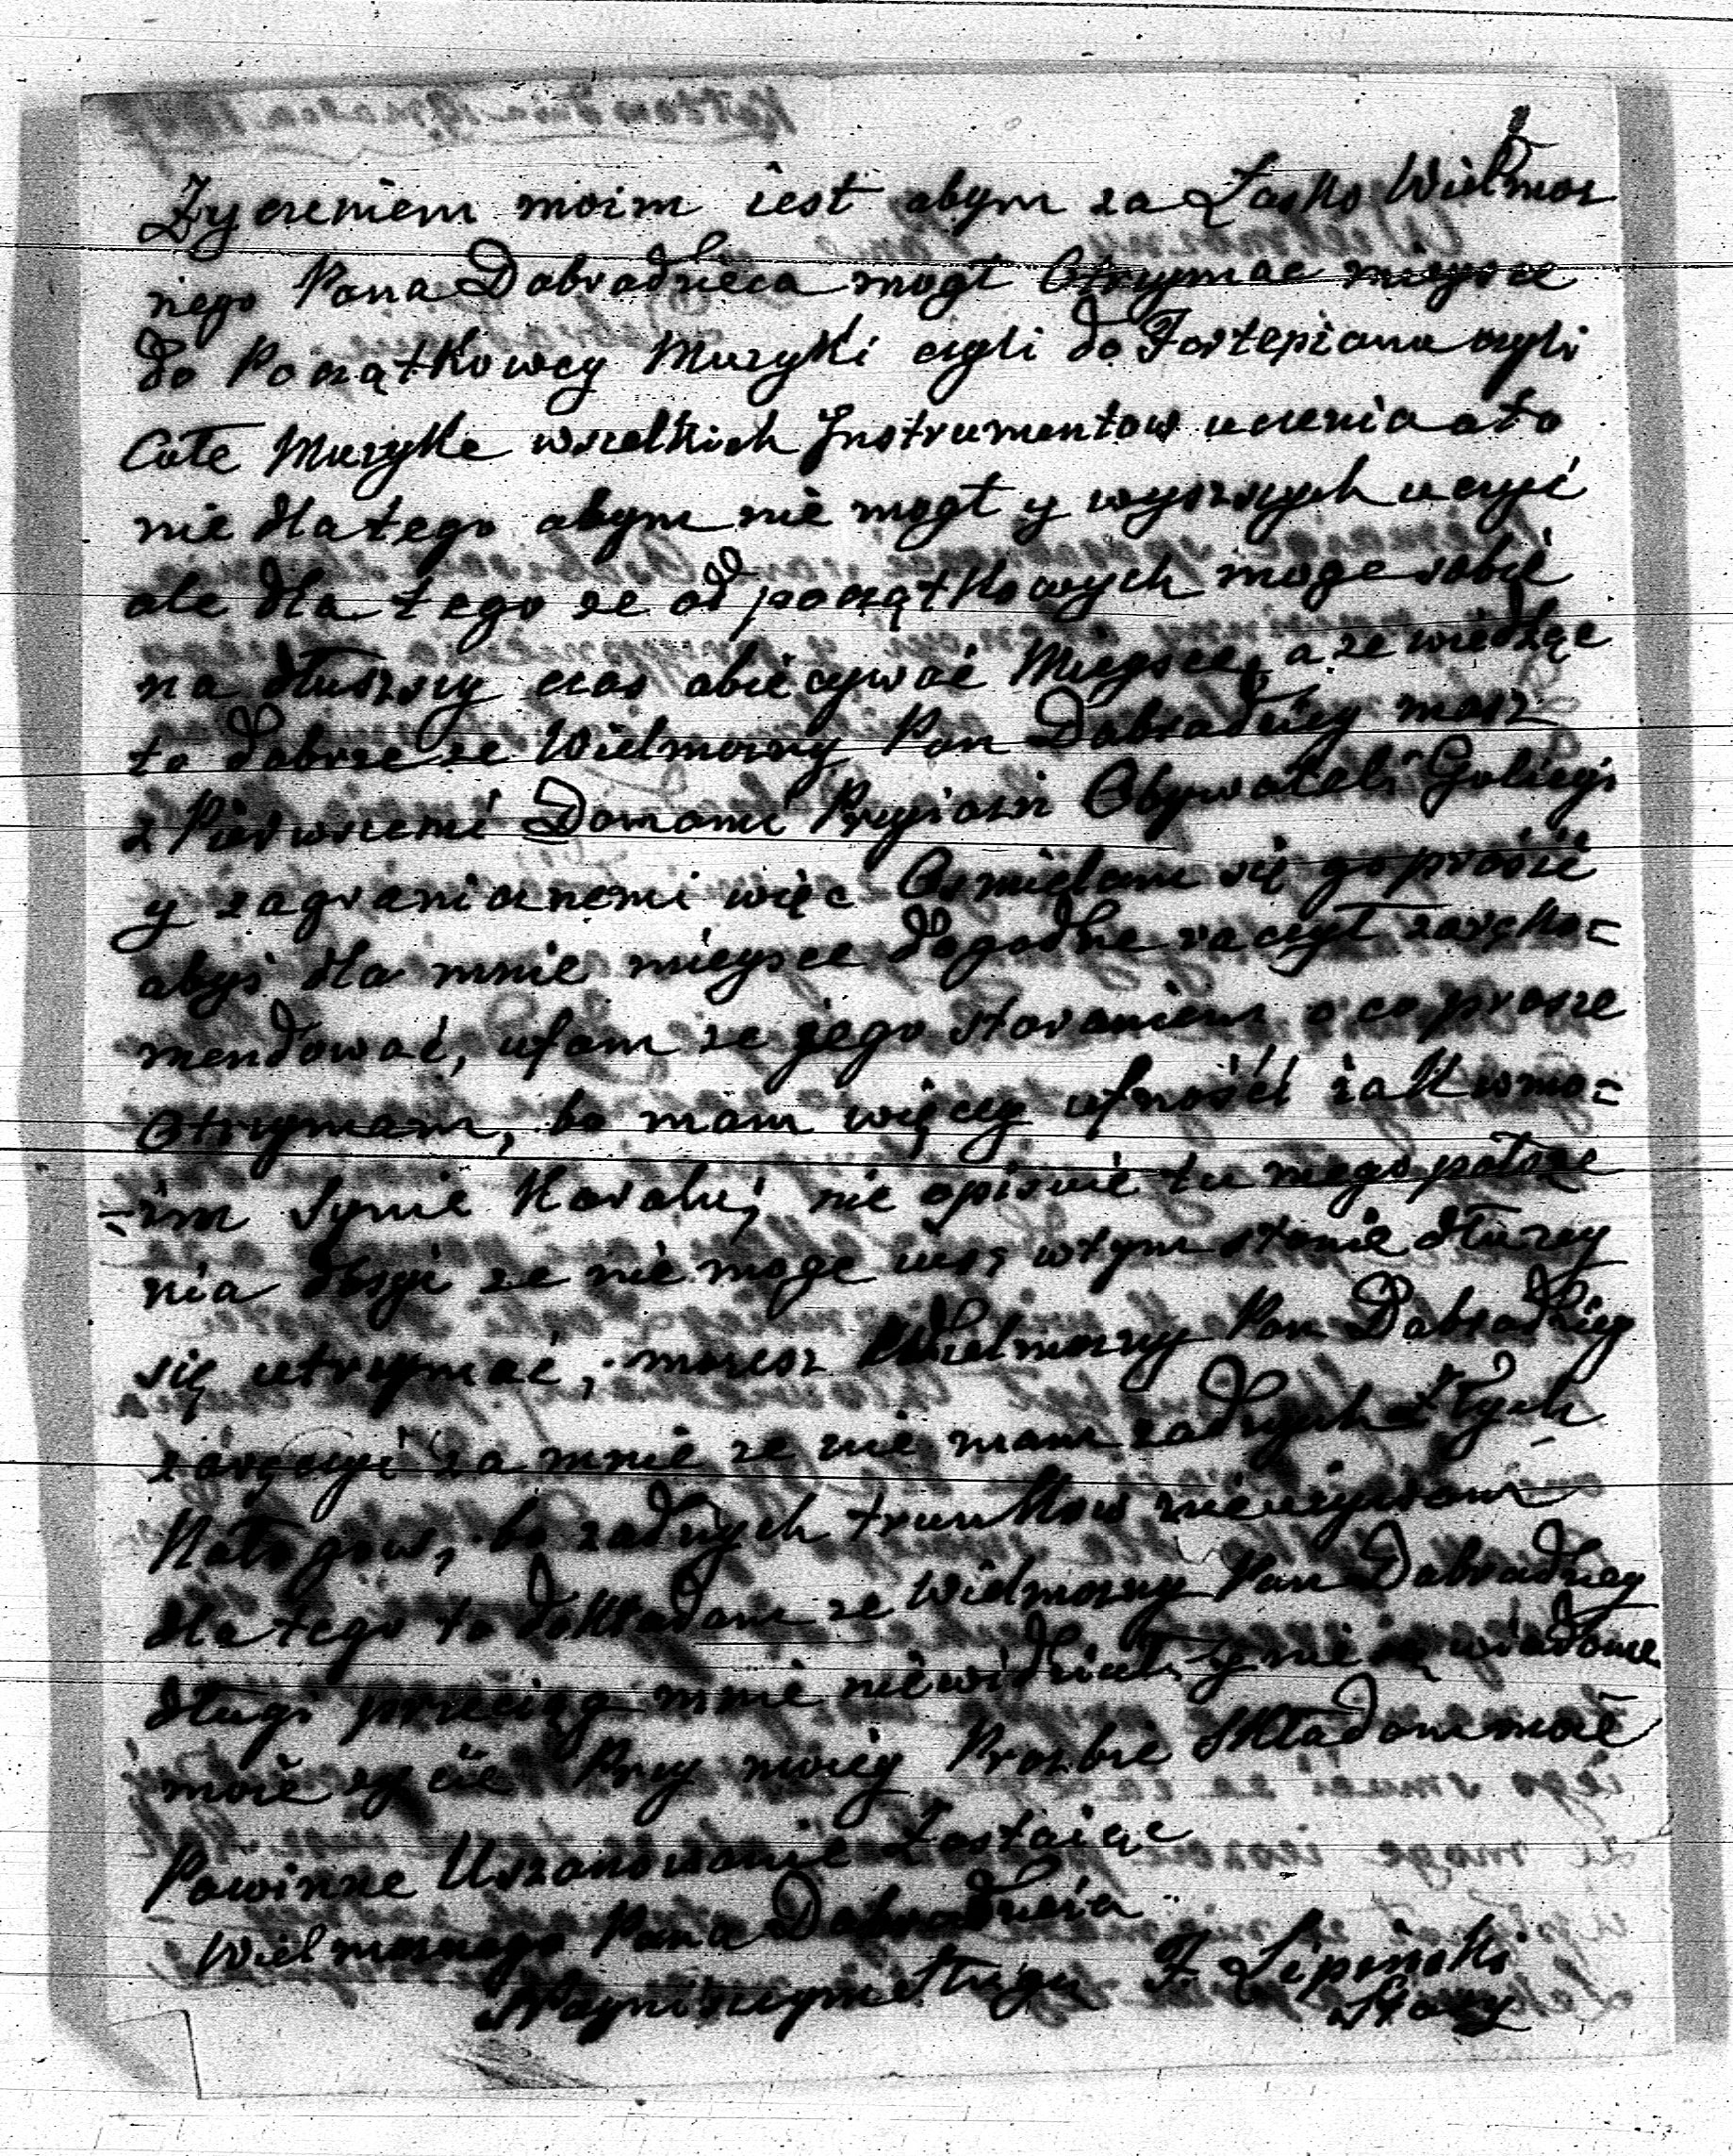 Zyczeniem moim iest abym za Łasko Wielmoz
nego Pana Dobrodzieia mogł Otrzymac mieysce
do Początkowey Muzyki czyli do Fortepiana czyli
Całe Muzyke wszelkich Jnstrumentow uczenia a to
nie dla tego abym nie mogł y wyszszych uczyć
ale dla tego ze od początkowych moge sobie
na dłuszszy czas obiecywać Mieysce, a ze wiedząc
to dobrze ze Wielmozny Pan Dobrodziey masz
z Pierwszemi Domami Przyiazn Obywateli Galicyi
y zagranicznemi więc Osmielam się go prosić
abyś dla mnie mieysce dogodne raczył zareko=
mendować, ufam ze jego staraniem o co prosze
Otrzymam, bo mam więcey ufności iak w mo=
=im Synie Karolu, nie opisuie tu mego położe
nia dosyć ze nie moge iusz w tym stanie dłuzey
się utrzymać, mozesz Wielmozny Pan Dobrodziey
zaręczyć za mnie ze nie mam zadnych złych
Nałogow, bo zadnych trunkow nieuzywam
dla tego to dokładam ze Wielmozny Pan Dobrodziey
długi przeciąg mnie niewidział y nie są wiadome
moie zycie Przy moiey Prozbie składam moie
Powinne Uszanowanie Zostaiąc
Wielmoznego Pana Dobrodzieia
Nayniszszym Sługą F. Lipinski
Stary